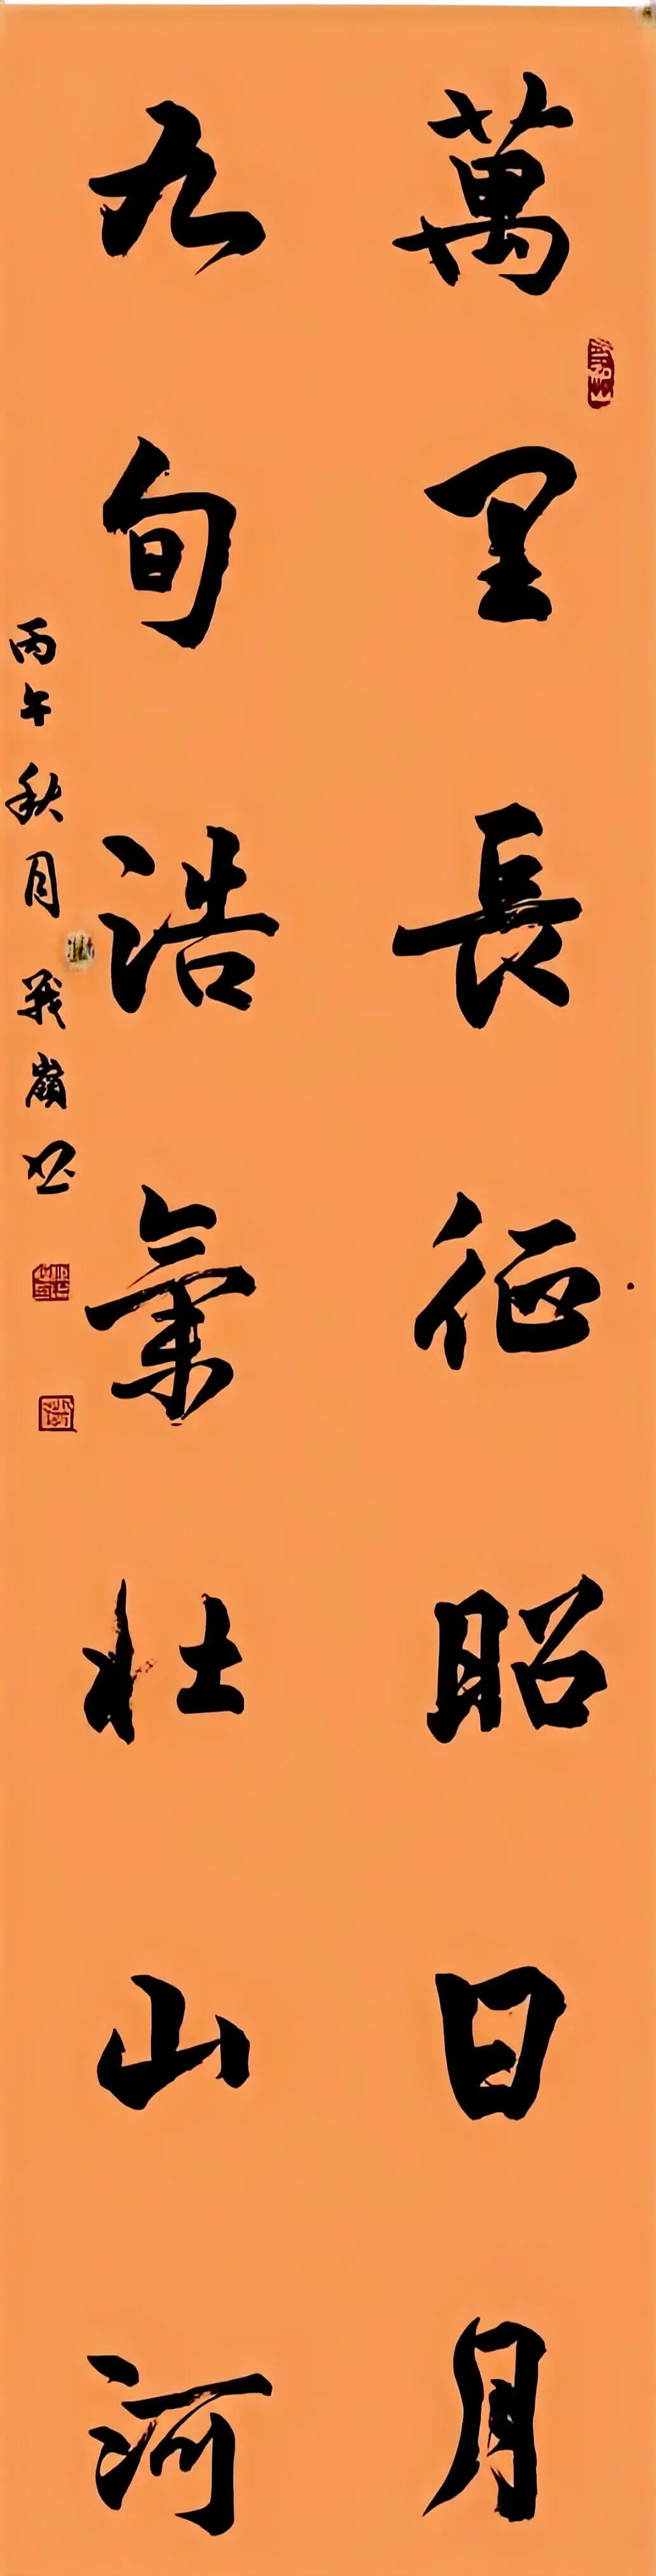 萬里長征昭日月
九旬浩氣壯山河
丙午秋月 戰嶺書